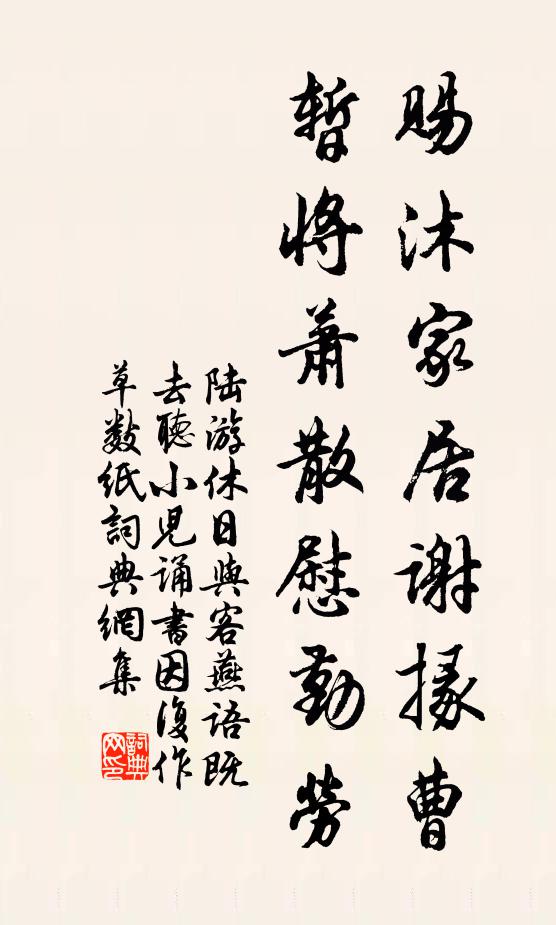 賜沐家居谢掾曹
暫將蕭散慰勤勞
陆游休日與客燕语既
去聽小児诵書因復作
草数纸詞典網集
詞典网印